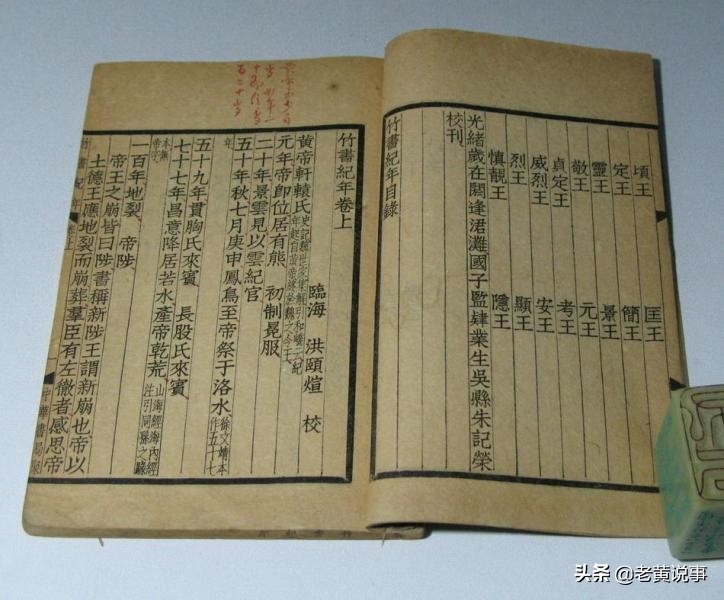 頃王 匡王
定王 簡王
靈王 景王
敬王 元王
貞定王 考王
威烈王 安王
烈王 顯王
慎靚王 隱王
光緒歲在閼逢涒灘國子監肄業生吳縣朱記榮
校刊
竹書紀年目錄
竹書紀年卷上
臨海 洪頤煊 校
黃帝軒轅氏
元年帝卽位居有熊 初制冕服
二十年景雲見以雲紀官
五十年秋七月庚申鳳鳥至帝祭于洛水 徐文靖本作五十七年
五十九年貫胸氏來賓 長股氏來賓
七十七年昌意降居若水產帝乾荒 山海經海內經注引同
一百年地裂 帝陟
帝王之崩皆曰陟書稱新陟王謂新崩也帝以
土德王應地裂而崩葬羣臣有左徹者感思帝
竹書紀年 卷上
中華書局聚
头条 @老黄说事